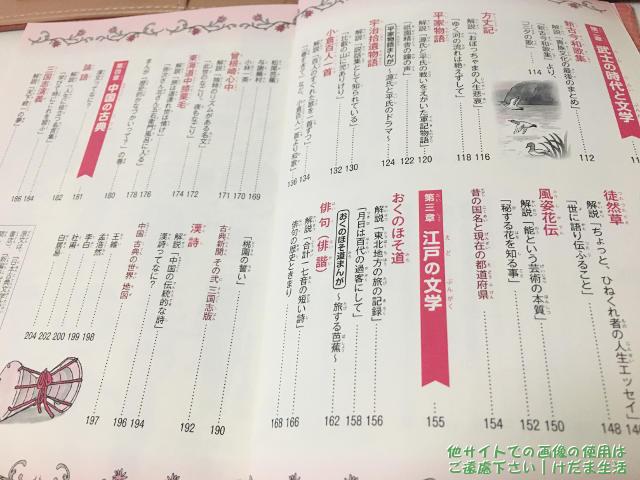 第二章 武士の時代と文学
新古今和歌集
解説「貴族文化の最後のまとめ」
『新古今和歌集』より、
コニタの歌
114
112
方丈記
解説「おぼっちゃまの人生悲哀」
「ゆく河の流れは絶えずして」
118
116
平家物語
解説「源氏と平氏の戦いをえがいた軍記物語」
「祇園精舎の鐘の声」
平家物語まんが 〜源氏と平氏のドラマ〜
124
122
120
宇治拾遺物語
解説「説話集として知られている」
「比叡の山に児ありけり」
132
130
小倉百人一首
解説「百人のすぐれた歌を一首ずつ」
136
134
徒然草
解説「ちょっと、ひねくれ者の人生エッセイ」
「世に語り伝ふること」
148
風姿花伝
解説「能という芸術の本質」
「秘する花を知る事」
152
150
昔の国名と現在の都道府県
154
第三章 江戸の文学
155
おくのほそ道
解説「東北地方の旅の記録」
「月日は百代の過客にして」
おくのほそ道まんが 〜旅する芭蕉〜
162
158
156
俳句(俳諧)
解説「合計一七音の短い詩」
俳句の歴史ときまり
168
166
松尾芭蕉
与謝蕪村
小林一茶
171
170
169
曽根崎心中
解説「独特のリズムがある名文」
「此世のなごり。夜もなごり」
174
172
東海道中膝栗毛
178
176
第四章 中国の古典
180
論語
182
181
三国志演義
186
184
「桃園の誓い」
古典新聞 その弐 三国志版
190
漢詩
解説「中国の伝統的な詩」
漢詩ってなに?
194
192
中国 古典の世界 地図
196
王維
孟浩然
李白
杜甫
白居易
204
202
200
199
198
197
他サイトでの画像の使用は
ご遠慮下さい|けだま生活